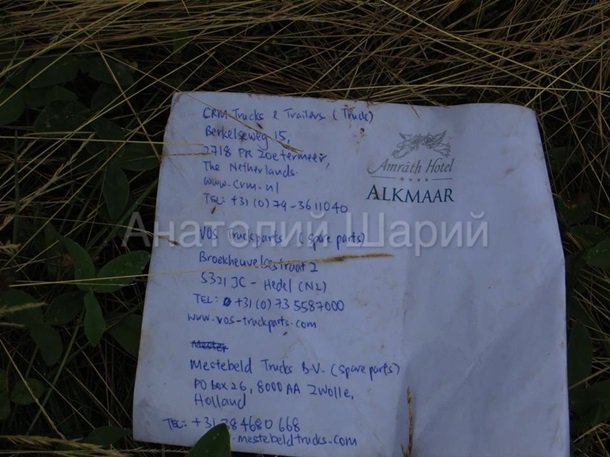 CRM Trucks & Trailers (Truck)
Berkelseweg 15,
2718 PR Zoetermeer,
The Netherlands.
www.crm.nl
TEL: +31 (0) 79-3611040.
Amrâth Hotel
ALKMAAR
Анатолий Шарий
VOS Truckparts (spare parts)
Broekheuvelsestraat 2
5321 JC - Hedel (NL)
TEL: +31 (0) 73 5587000
www.vos-truckparts.com
Mestebeld Trucks B.V. (spare parts)
PO Box 26, 8000 AA Zwolle,
Holland
TEL: +31 38 4680 668
.mestebeldtrucks.com